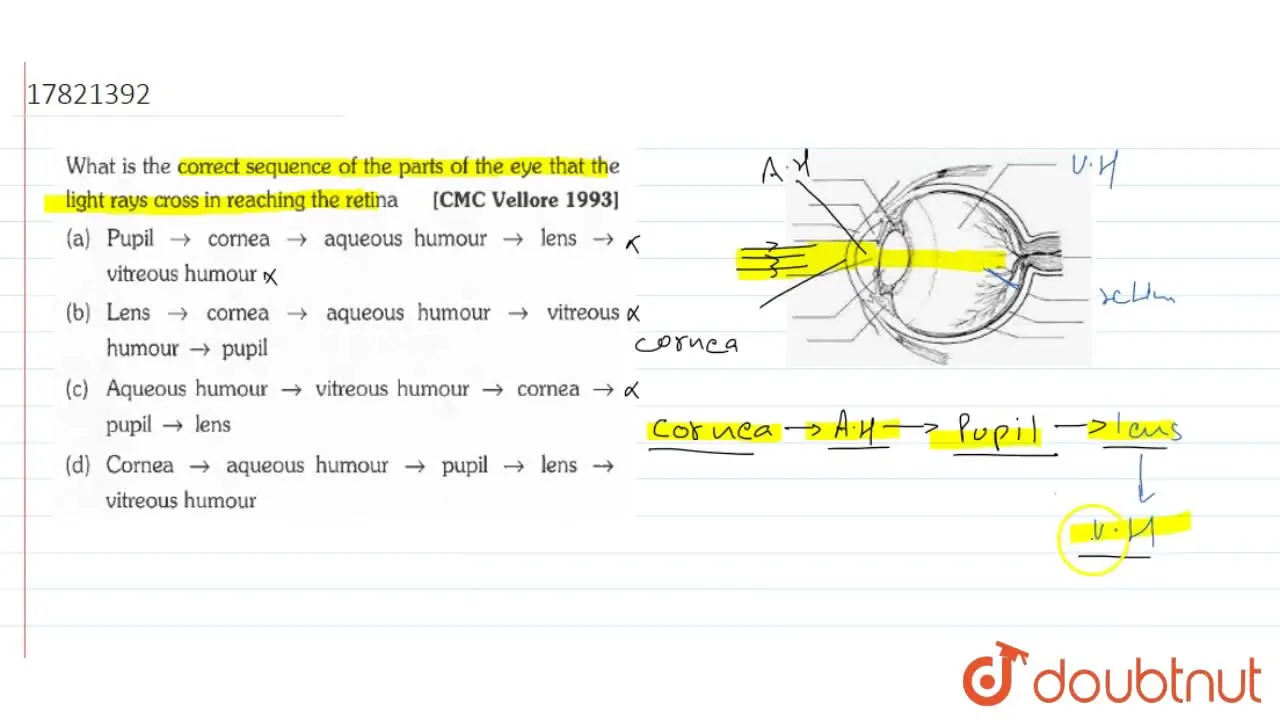 17821392
What is the correct sequence of the parts of the eye that the
light rays cross in reaching the retina [CMC Vellore 1993]
(a) Pupil → cornea → aqueous humour → lens →
vitreous humour
(b) Lens → cornea → aqueous humour → vitreous
humour → pupil
(c) Aqueous humour → vitreous humour → cornea →
pupil → lens
(d) Cornea → aqueous humour → pupil → lens →
vitreous humour
A.H
V.H
cornea
cornea → A.H → Pupil → lens
V.H
doubtnut